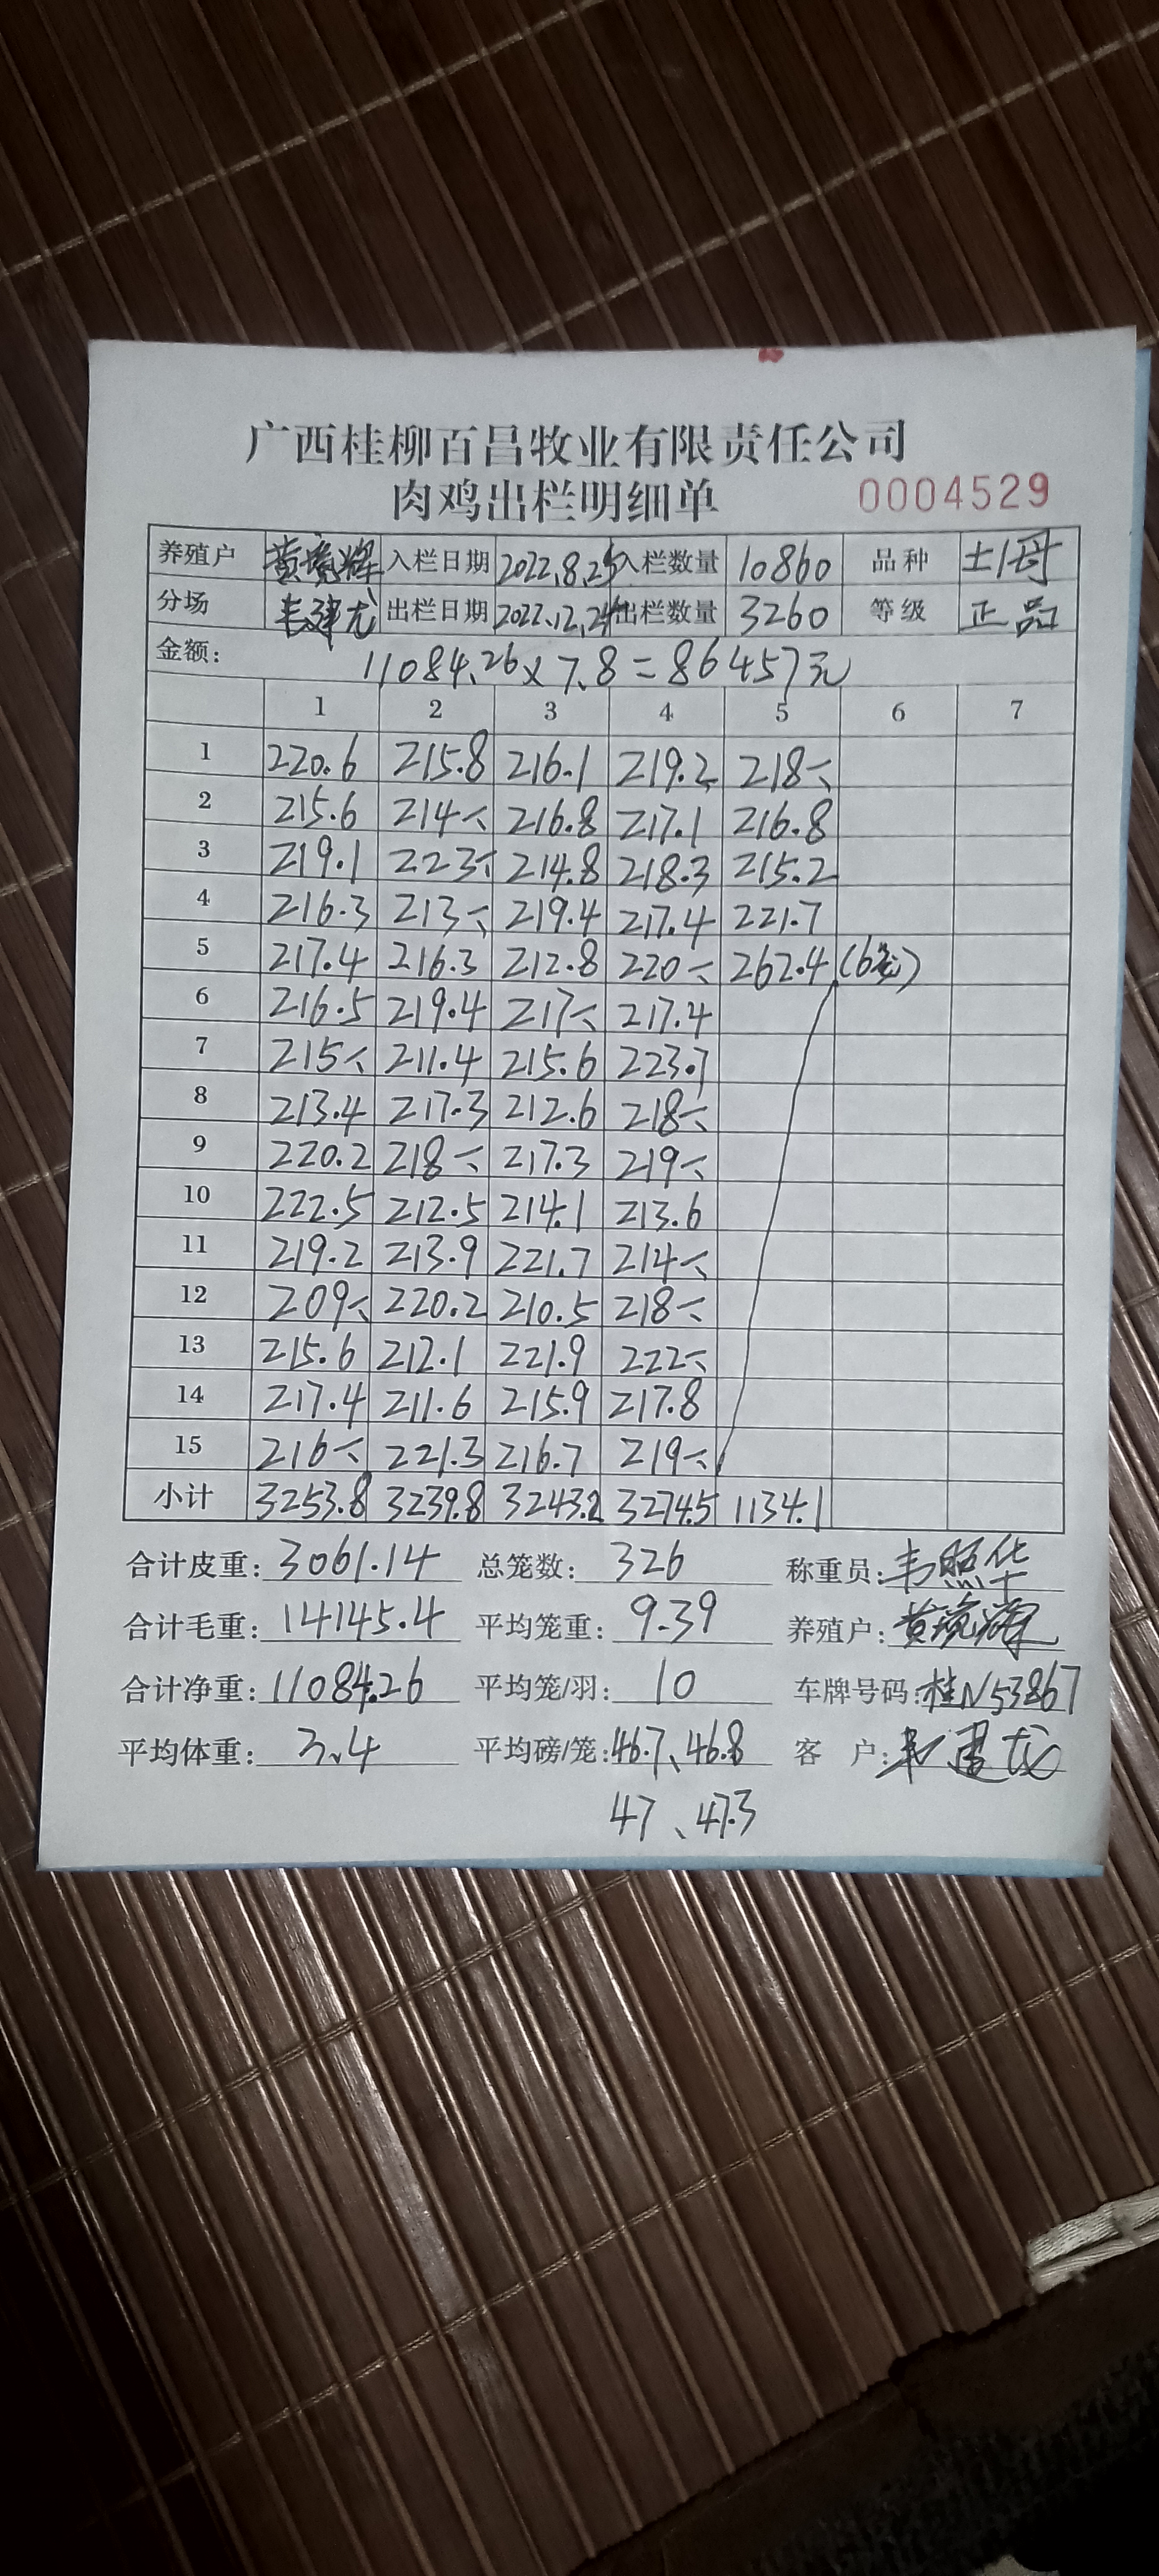 广西桂柳百昌牧业有限责任公司
肉鸡出栏明细单 0004529
养殖户 入栏日期 2022.8.25 入栏数量 10860 品种 土1母
分场 韦建龙 出栏日期 2022.12.24 出栏数量 3260 等级 正品
金额: 11084.26×7.8=86457元
1 2 3 4 5 6 7
1 220.6 215.8 216.1 219.2 218
2 215.6 214 216.8 217.1 216.8
3 219.1 223 214.8 218.3 215.2
4 216.3 213 219.4 217.4 221.7
5 217.4 216.3 212.8 220 262.4 (6笼)
6 216.5 219.4 217 217.4
7 215 211.4 215.6 223.7
8 213.4 217.3 212.6 218
9 220.2 218 217.3 219
10 222.5 212.5 214.1 213.6
11 219.2 213.9 221.7 214
12 209 220.2 210.5 218
13 215.6 212.1 221.9 222
14 217.4 211.6 215.9 217.8
15 216 221.3 216.7 219
小计 3253.8 3239.8 3243.2 3274.5 1134.1
合计皮重: 3061.14 总笼数: 326 称重员: 韦照华
合计毛重: 14145.4 平均笼重: 9.39 养殖户:
合计净重: 11084.26 平均笼/羽: 10 车牌号码: 桂N53867
平均体重: 3.4 平均磅/笼: 46.7、46.8 客 户: 韦建龙
47、47.3